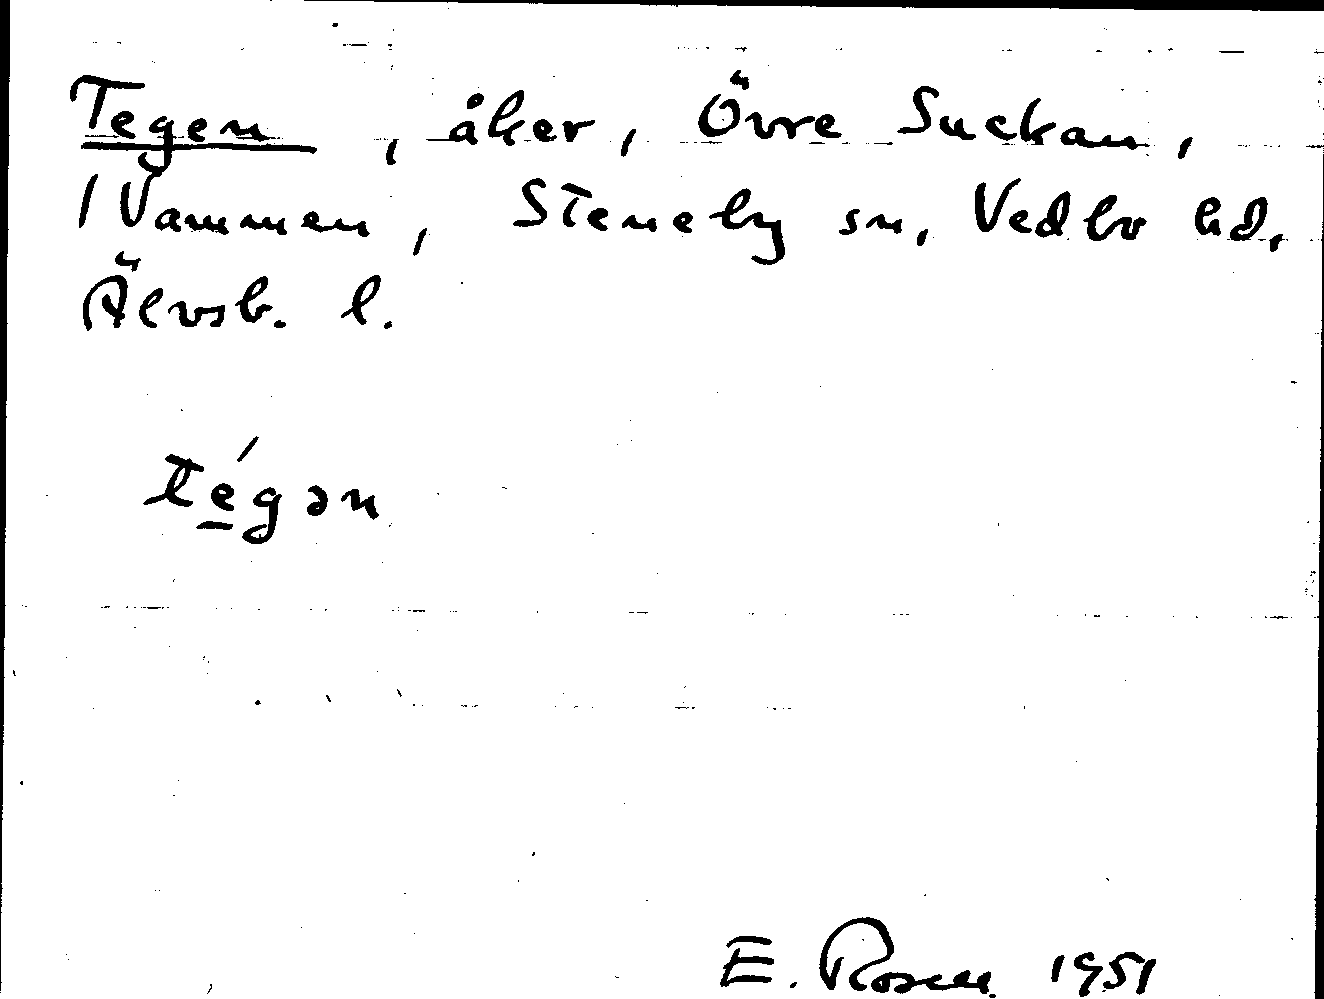 Tegen, åker, Övre Suckan,
1 Vammen, Steneby sn, Vedbo hd,
Älvsb. l.
té̲gən
E. Rosell 1951